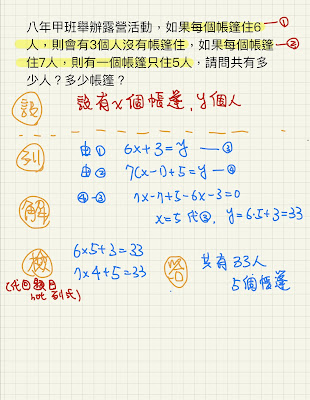 八年甲班舉辦露營活動，如果每個帳篷住6 ─①
人，則會有3個人沒有帳篷住，如果每個帳篷 ─②
住7人，則有一個帳篷只住5人，請問共有多
少人？多少帳篷？
設 設有x個帳篷，y個人
列 由① 6x+3=y ─③
由② 7(x-1)+5=y ─④
解 ④-③ 7x-7+5-6x-3=0
x=5 代③，y=6·5+3=33
檢 6×5+3=33
7×4+5=33
(代回題目
not 列式)
答 共有33人
5個帳篷